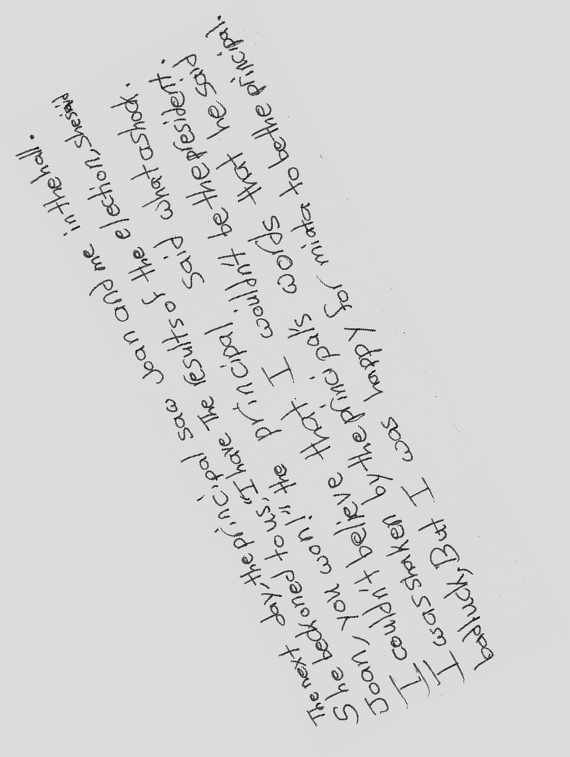 The next day, the principal saw Joan and me in the hall.
She beckoned to us, "I have The results of the election, she said
Joan, you won!" the principal said what a shock.
I couldn't believe that I wouldn't be the president.
I was shaken by the principals words that he said
bad luck, But I was happy for miata to be the principal.